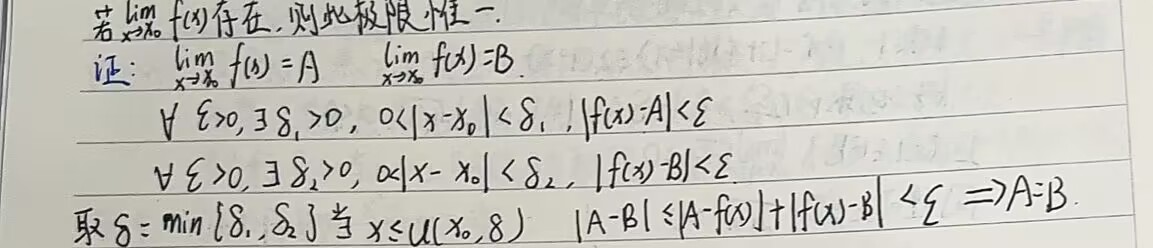 若 lim x→x₀ f(x)存在,则此极限惟一.
证: lim x→x₀ f(x)=A lim x→x₀ f(x)=B.
∀ ε>0, ∃ δ₁>0, 0<|x-x₀|<δ₁, |f(x)-A|<ε
∀ ε>0, ∃ δ₂>0, 0<|x-x₀|<δ₂, |f(x)-B|<ε
取 δ=min{δ₁,δ₂} 当 x≤u(x₀,δ) |A-B|≤|A-f(x)|+|f(x)-B|<ε ⟹A=B.